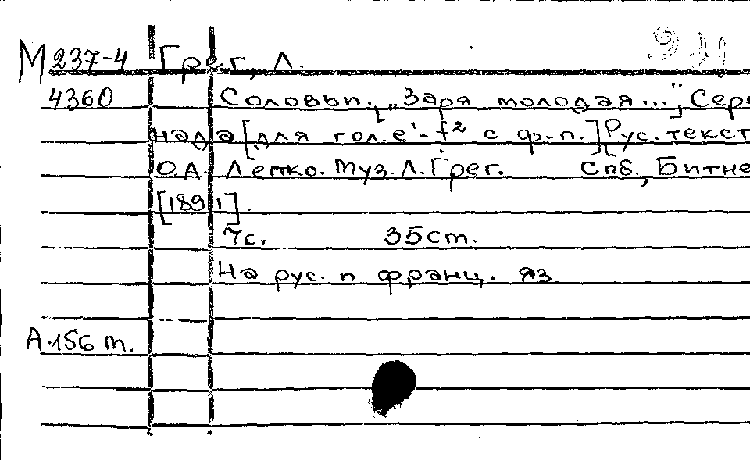 М 237-4 Грег, Л.
4360 Соловьи. [„Заря молодая..."] Сере
нада [для гол. e'-f² с ф-п.] Рус. текст
О.А. Лепко. Муз. Л. Грег. Спб., Битне
[1891].
7с. 35 cm.
На рус. и франц. яз.
А.156 т.